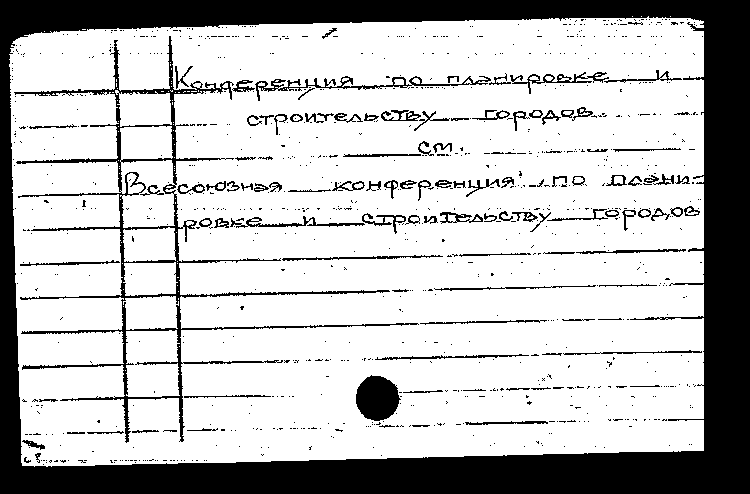 Конференция по планировке и
строительству городов.
см.
Всесоюзная конференция по плани-
ровке и строительству городов